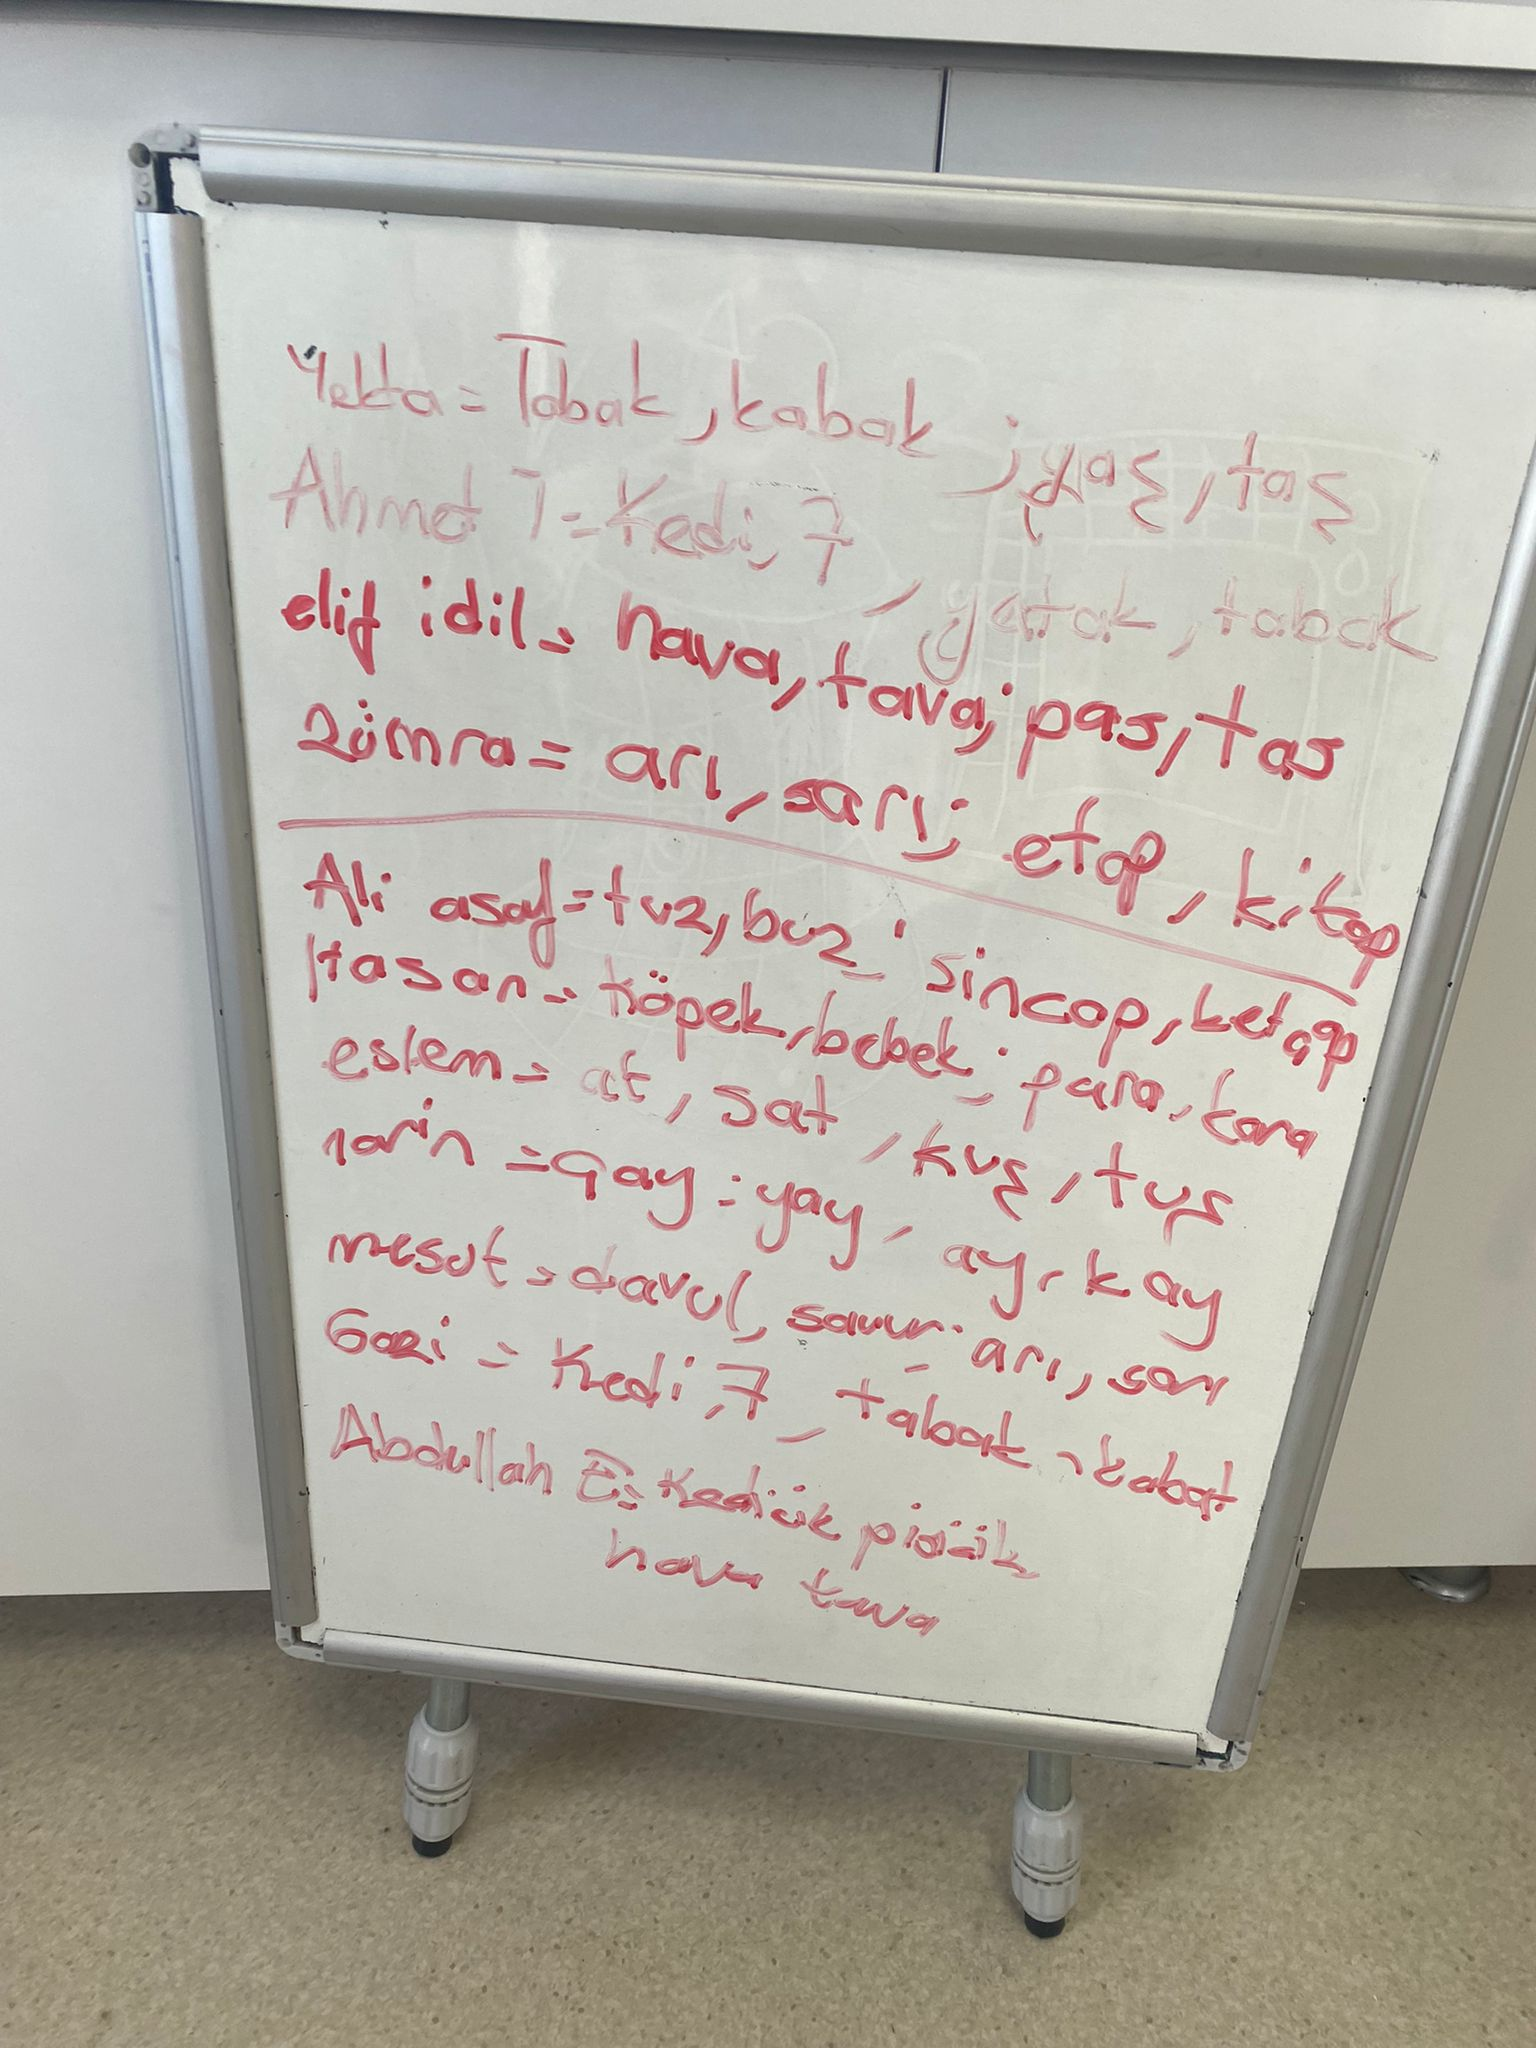 Yekta = Tabak, kabak ; yaş, taş
Ahmet T = Kedi, 7, yatak, tabak
elif idil = hava, tava; pas, tas
zümra = arı, sarı; etap, kitap
Ali asaf = tuz, buz ; sincap, ketçap
Hasan = köpek, bebek ; para, kara
eslem = at, sat, kuş, tuş
narin = çay : yay, ay, kay
mesut = davul, savur; arı, sarı
Gazi = Kedi, 7, tabak, kabak
Abdullah E = Kedicik pisicik
hava tava